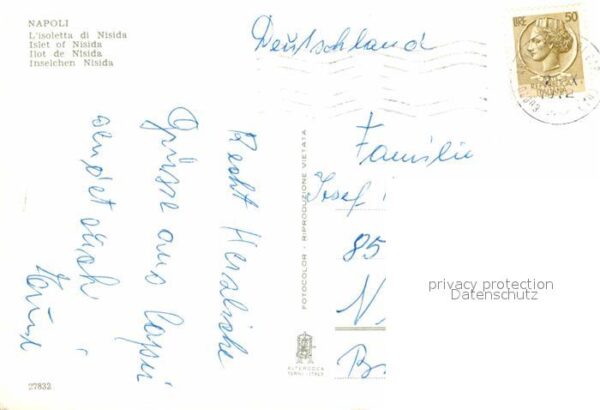 NAPOLI
L'isoletta di Nisida
Islet of Nisida
Ilot de Nisida
Inselchen Nisida
Deutschland
LIRE 50
1972
Recht Herzliche
Grüsse aus Capri
sendet euch
Familie
Josef
85
N
B
FOTOCOLOR - RIPRODUZIONE VIETATA
ALTEROCCA
TERNI - ITALY
27832
privacy protection
Datenschutz